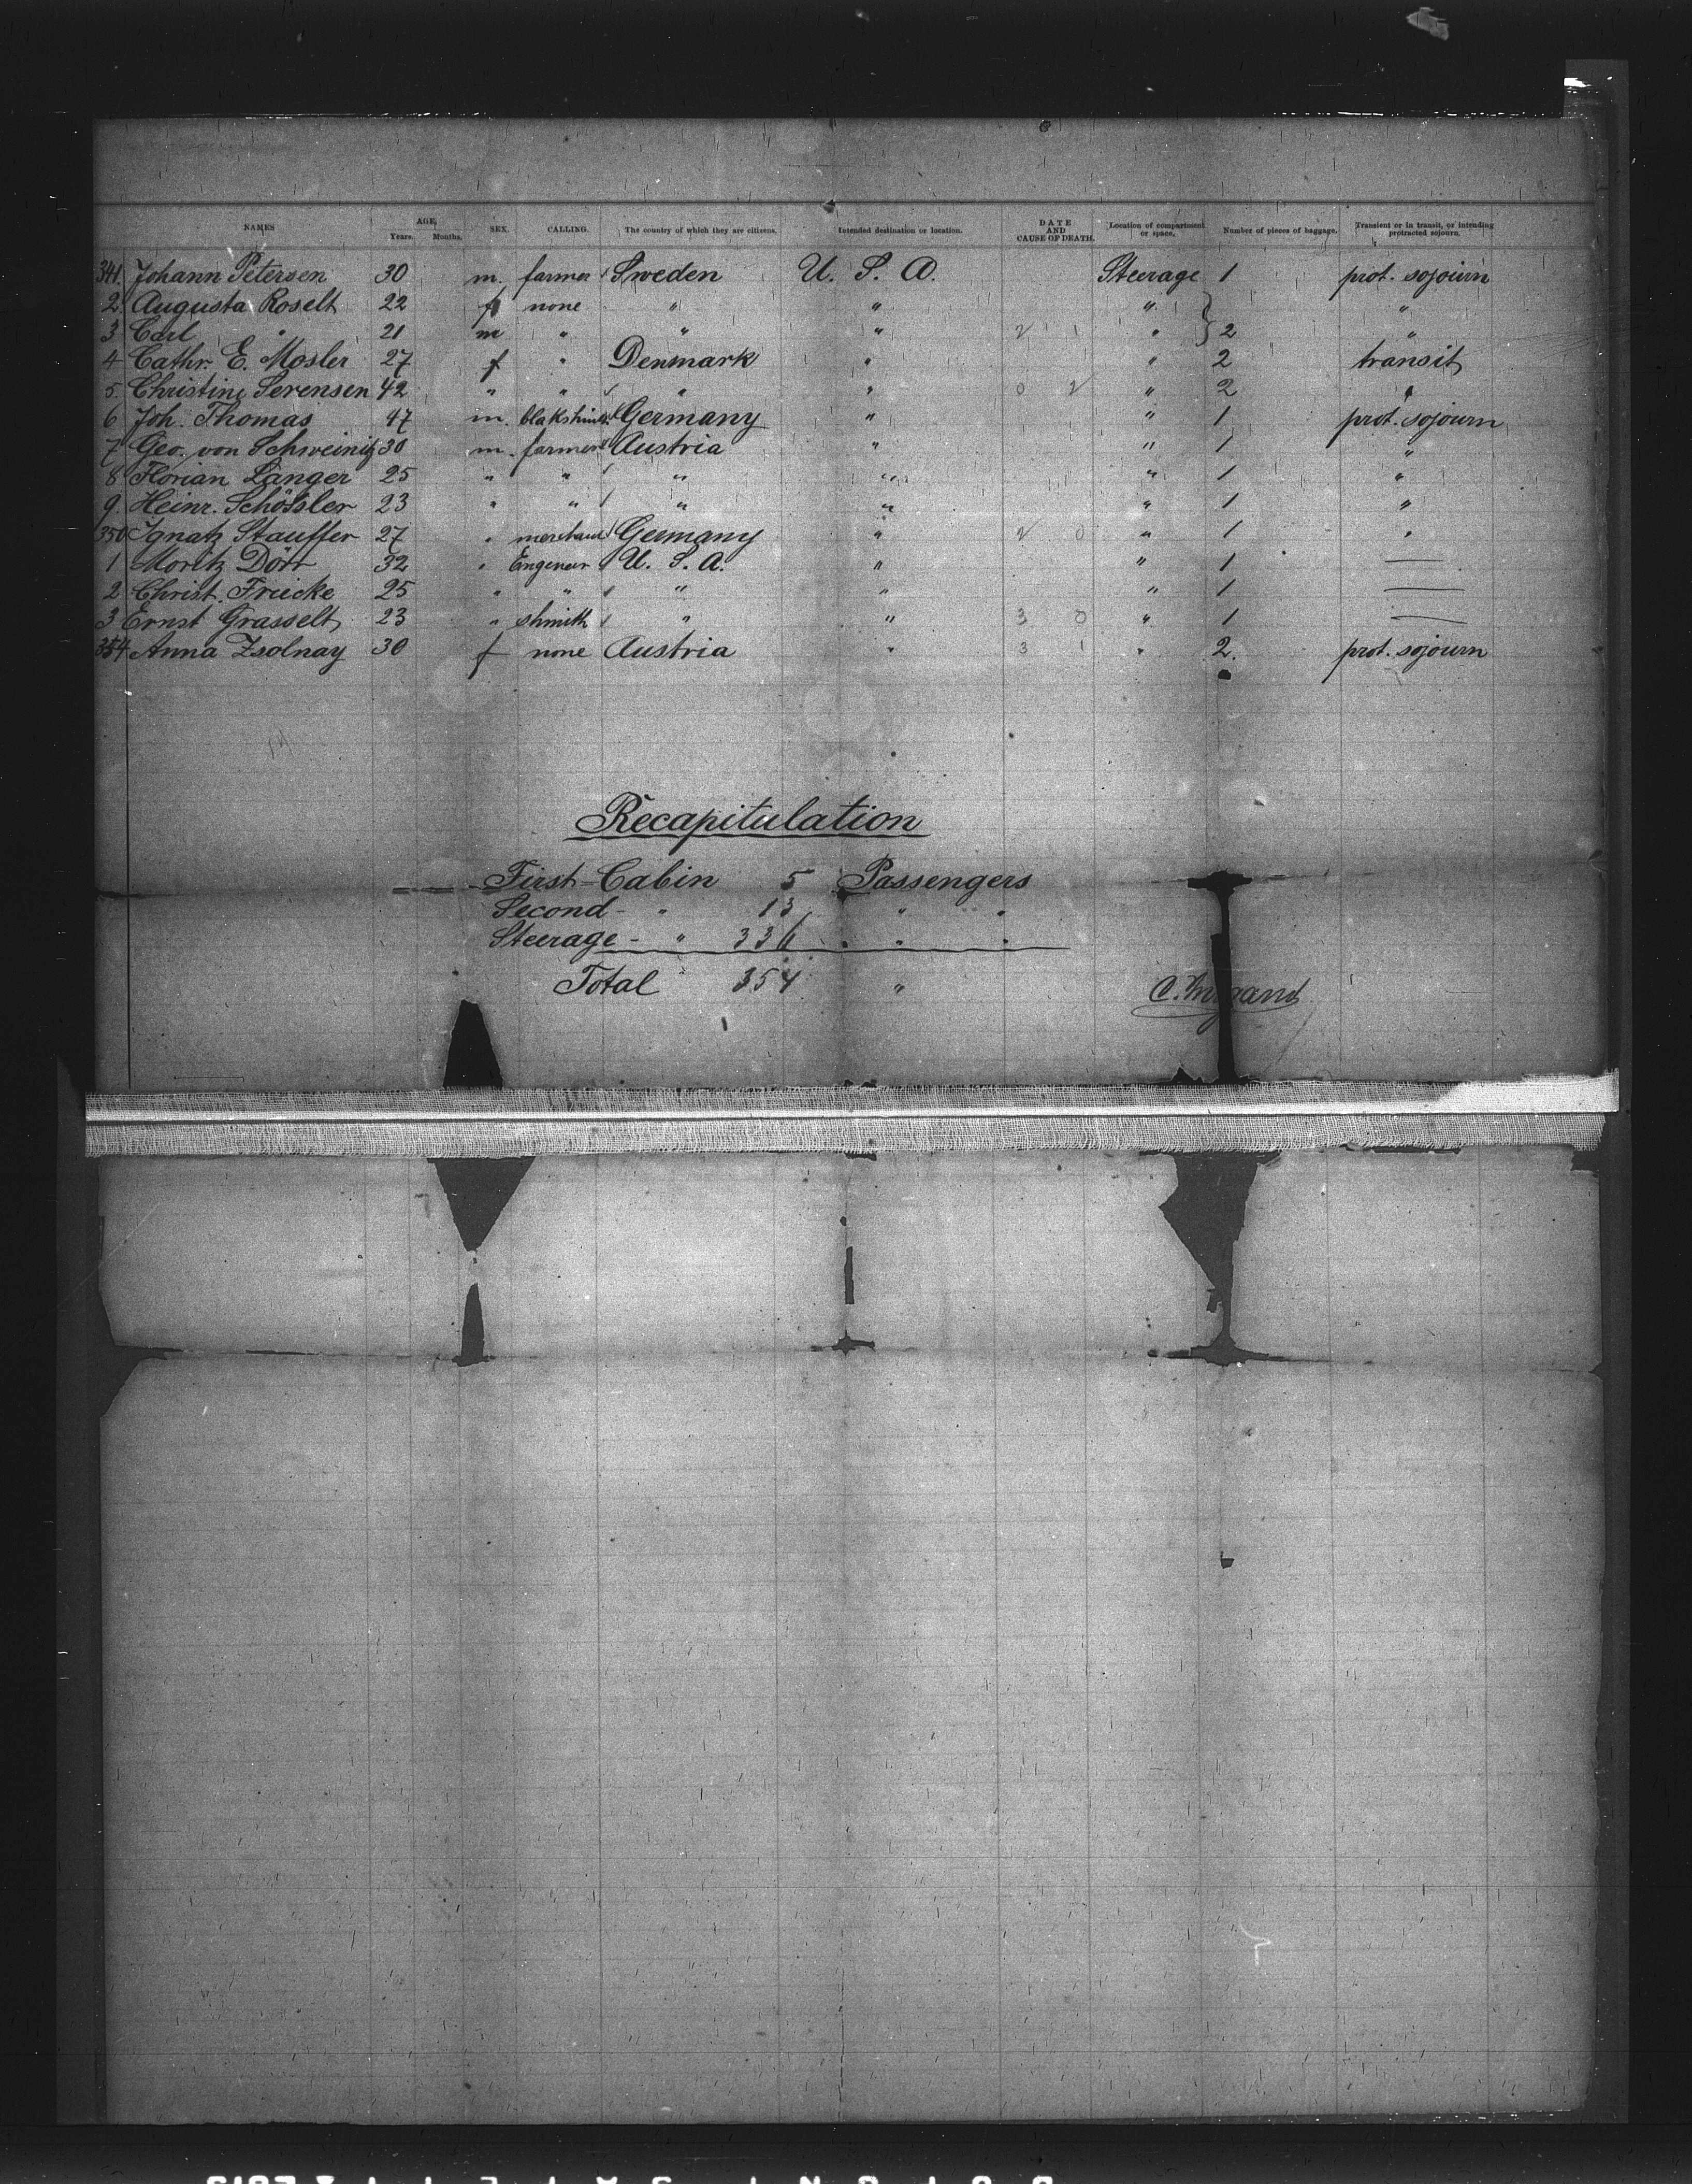 NAMES AGE, Years. Months. SEX. CALLING. The country of which they are citizens. Intended destination or location. DATE AND CAUSE OF DEATH. Location of compartment or space. Number of pieces of baggage. Transient or in transit, or intending protracted sojourn.
341. Johann Petersen 30 m. farmer Sweden U. S. A. Steerage 1 prot. sojourn
2. Augusta Roselt 22 f none " " " "
3 Carl " 21 m " " " 2 1 " 2 "
4 Cathr. E. Mosler 27 f " Denmark " " 2 transit
5. Christine Serensen 42 " " " " 0 2 " 2 "
6 Joh. Thomas 47 m. Germany " " 1 prot. sojourn
7 Geo. von Schweinitz 30 m. farmer Austria " " 1 "
8 Florian Langer 25 " " " " " 1 "
9. Heinr. Schössler 23 " " " " " 1 "
350 Ignatz Stauffer 27 " merchant Germany " 2 0 " 1 "
1 Moritz Dörr 32 " Engeneer U. S. A. " " 1 —
2 Christ. Friecke 25 " " " " " 1 —
3 Ernst Grasselt 23 " shmith " " 3 0 " 1 —
354 Anna Zsolnay 30 f none Austria " 3 1 " 2. prot. sojourn
Recapitulation
First-Cabin 5 Passengers
Second- " 13 "
Steerage- " 336 "
Total 354 "